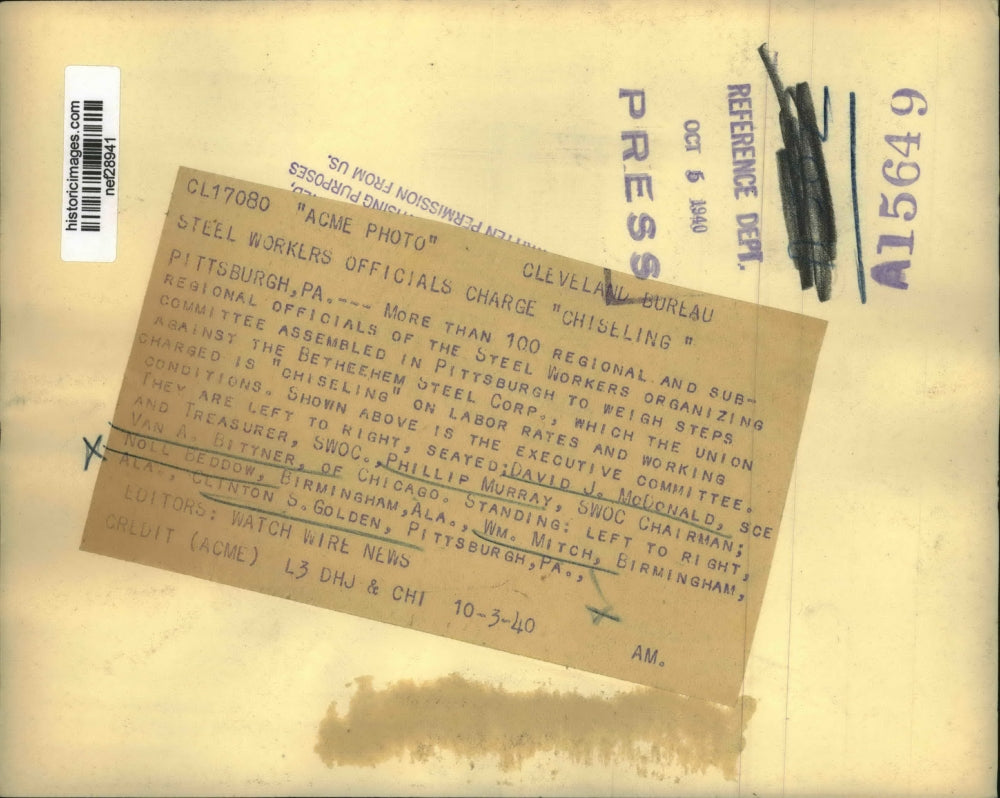 historicimages.com
nef28941
SING PURPOSES
PERMISSION FROM US.
PRESS
OCT 5 1940
REFERENCE DEPT.
A15649
CL17080 "ACME PHOTO" CLEVELAND BUREAU
STEEL WORKERS OFFICIALS CHARGE "CHISELING "
PITTSBURGH,PA.--- MORE THAN 100 REGIONAL AND SUB-
REGIONAL OFFICIALS OF THE STEEL WORKERS ORGANIZING
COMMITTEE ASSEMBLED IN PITTSBURGH TO WEIGH STEPS
AGAINST THE BETHEEHEM STEEL CORP., WHICH THE UNION
CHARGED IS "CHISELING" ON LABOR RATES AND WORKING
CONDITIONS. SHOWN ABOVE IS THE EXECUTIVE COMMITTEE.
THEY ARE LEFT TO RIGHT, SEATED;DAVID J. MCDONALD, SCE
AND TREASURER, SWOC.,PHILLIP MURRAY, SWOC CHAIRMAN;
VAN A. BITTNER, OF CHICAGO. STANDING: LEFT TO RIGHT,
NOLL BEDDOW, BIRMINGHAM,ALA., WM. MITCH, BIRMINGHAM,
ALA., CLINTON S.GOLDEN, PITTSBURGH,PA.,
EDITORS: WATCH WIRE NEWS
CREDIT (ACME) L3 DHJ & CHI 10-3-40 AM.